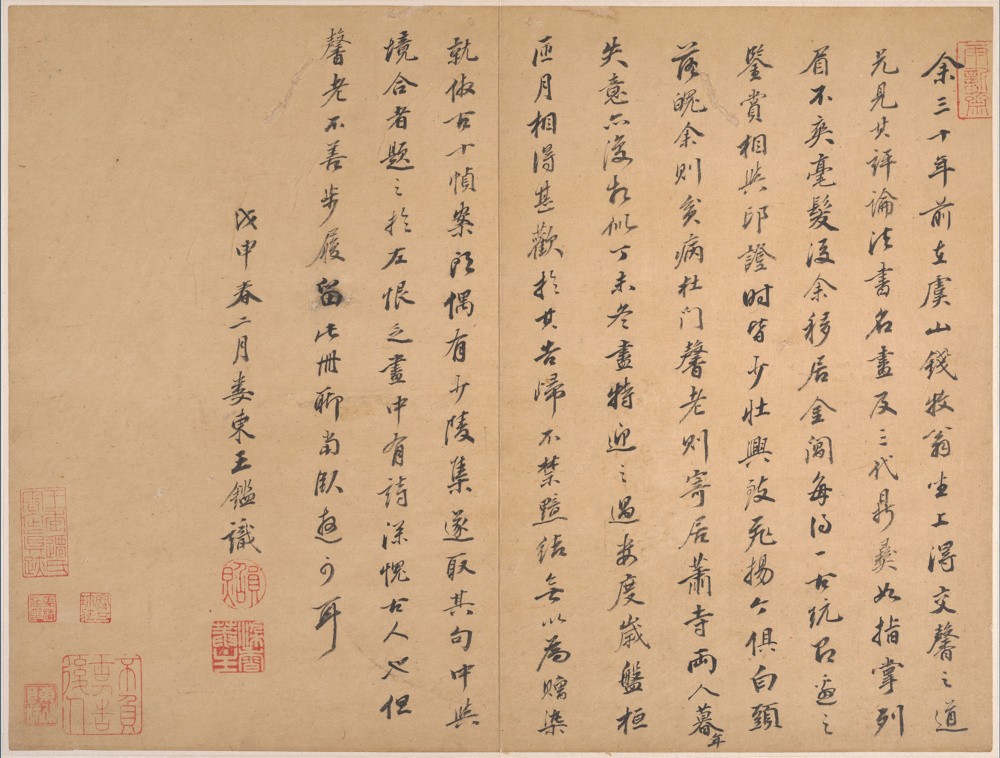 余三十年前在虞山錢牧翁坐上得交馨之道
兄見其評論法書名畫及三代鼎彝如指掌列
眉不爽毫髮後余移居金閶每得一古玩召過之
鑒賞相與印證時皆少壯興致飛揚今俱白頭
落魄余則貧病杜门馨老則寄居蕭寺兩人暮年
失意亦復相似丁未冬盡特迎之過婁度歲盤桓
匝月相得甚歡於其告歸不禁黯結無以為贈染
就倣古十幀案頭偶有少陵集遂取其句中與
境合者題之於左恨乏畫中有詩深愧古人也但
馨老不善步履留此冊聊當臥遊可耳
戊申春二月婁東王鑑識